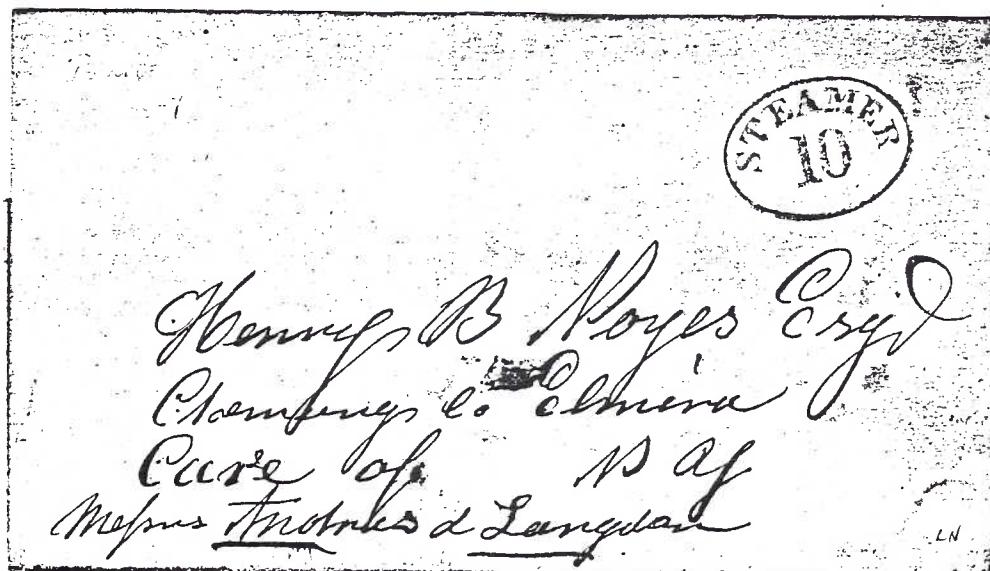 STEAMER
10
Henry B Noyes Esqr
Chemung Co Elmira
Care of N Y
Messrs Andrus & Langdon
LN